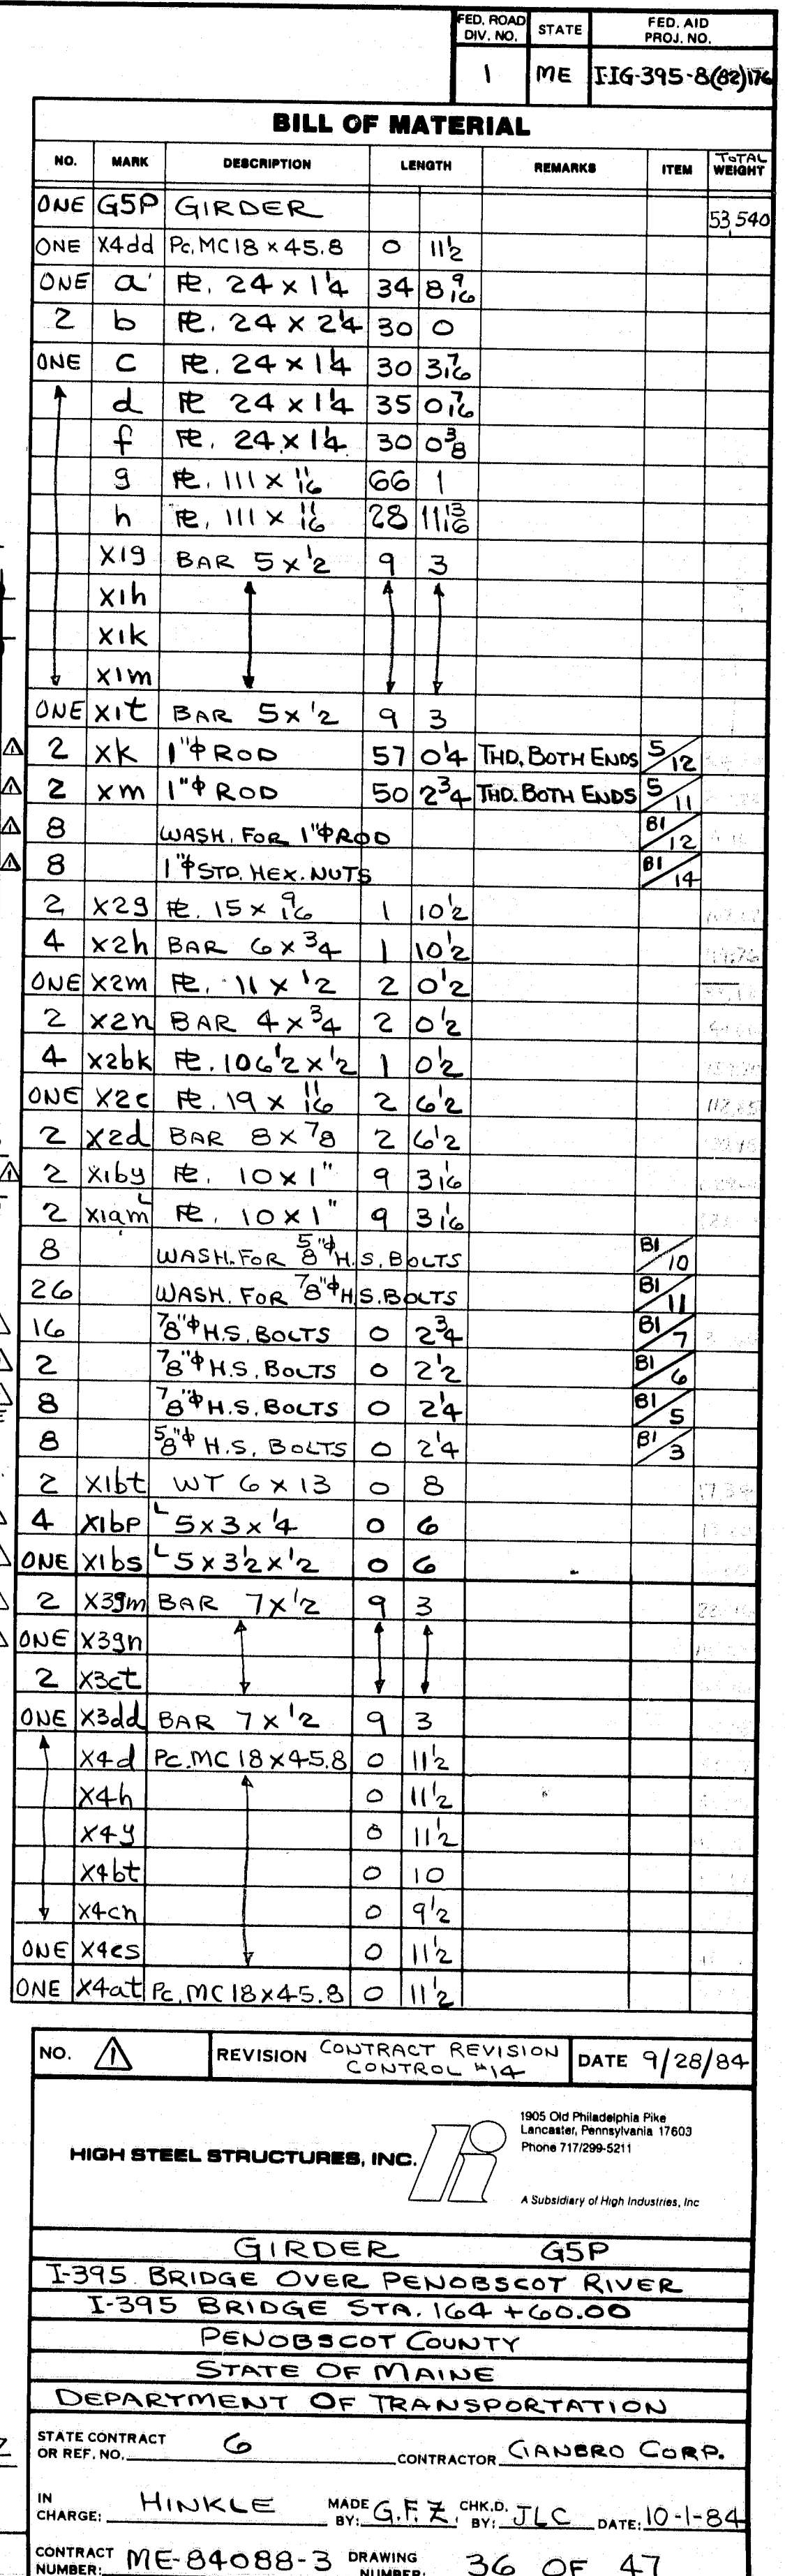 FED. ROAD DIV. NO. STATE FED. AID PROJ. NO.
1 ME I-IG-395-8(82)176
BILL OF MATERIAL
NO. MARK DESCRIPTION LENGTH REMARKS ITEM TOTAL WEIGHT
ONE G5P GIRDER 53,540
ONE X4dd Pc. MC18 × 45.8 0 11 1/2
ONE a PL. 24 × 1 1/4 34 8 9/16
2 b PL. 24 × 2 1/4 30 0
ONE c PL. 24 × 1 1/4 30 3 7/16
d PL 24 × 1 1/4 35 0 7/16
f PL. 24 × 1 1/4 30 0 3/8
g PL. 111 × 11/16 66 1
h PL. 111 × 11/16 28 11 13/16
X1g BAR 5 × 1/2 9 3
X1h
X1k
X1m
ONE X1t BAR 5 × 1/2 9 3
1 2 Xk 1"φ ROD 57 0 1/4 THD. BOTH ENDS 5/12
1 2 Xm 1"φ ROD 50 2 3/4 THD. BOTH ENDS 5/11
1 8 WASH. FOR 1"φ ROD B1/12
1 8 1"φ STD. HEX. NUTS B1/14
2 X2g PL. 15 × 9/16 1 10 1/2
4 X2h BAR 6 × 3/4 1 10 1/2
ONE X2m PL. 11 × 1/2 2 0 1/2
2 X2n BAR 4 × 3/4 2 0 1/2
4 X2bk PL. 106 1/2 × 1/2 1 0 1/2
ONE X2c PL. 19 × 11/16 2 6 1/2
2 X2d BAR 8 × 7/8 2 6 1/2
1 2 X1by PL. 10 × 1" 9 3 1/16
2 X1am L PL. 10 × 1" 9 3 1/16
8 WASH. FOR 5/8"φ H.S. BOLTS B1/10
26 WASH. FOR 7/8"φ H.S. BOLTS B1/11
16 7/8"φ H.S. BOLTS 0 2 3/4 B1/7
2 7/8"φ H.S. BOLTS 0 2 1/2 B1/6
8 7/8"φ H.S. BOLTS 0 2 1/4 B1/5
8 5/8"φ H.S. BOLTS 0 2 1/4 B1/3
2 X1bt WT 6 × 13 0 8
4 X1bp L 5 × 3 × 1/4 0 6
ONE X1bs L 5 × 3 1/2 × 1/2 0 6
2 X3gm BAR 7 × 1/2 9 3
ONE X3gn
2 X3ct
ONE X3dd BAR 7 × 1/2 9 3
X4d Pc. MC 18 × 45.8 0 11 1/2
X4h 0 11 1/2
X4y 0 11 1/2
X4bt 0 10
X4cn 0 9 1/2
ONE X4cs 0 11 1/2
ONE X4at Pc. MC 18 × 45.8 0 11 1/2
NO. 1 REVISION CONTRACT REVISION CONTROL #14 DATE 9/28/84
1905 Old Philadelphia Pike
Lancaster, Pennsylvania 17603
Phone 717/299-5211
HIGH STEEL STRUCTURES, INC.
A Subsidiary of High Industries, Inc
GIRDER G5P
I-395 BRIDGE OVER PENOBSCOT RIVER
I-395 BRIDGE STA. 164 + 60.00
PENOBSCOT COUNTY
STATE OF MAINE
DEPARTMENT OF TRANSPORTATION
STATE CONTRACT OR REF. NO. 6 CONTRACTOR CIANBRO CORP.
IN CHARGE: HINKLE MADE BY: G.F.Z. CHK.D. BY: JLC DATE: 10-1-84
CONTRACT NUMBER: ME-84088-3 DRAWING NUMBER: 36 OF 47